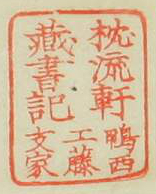 枕流軒
鴨西
工藤
文家
藏書記